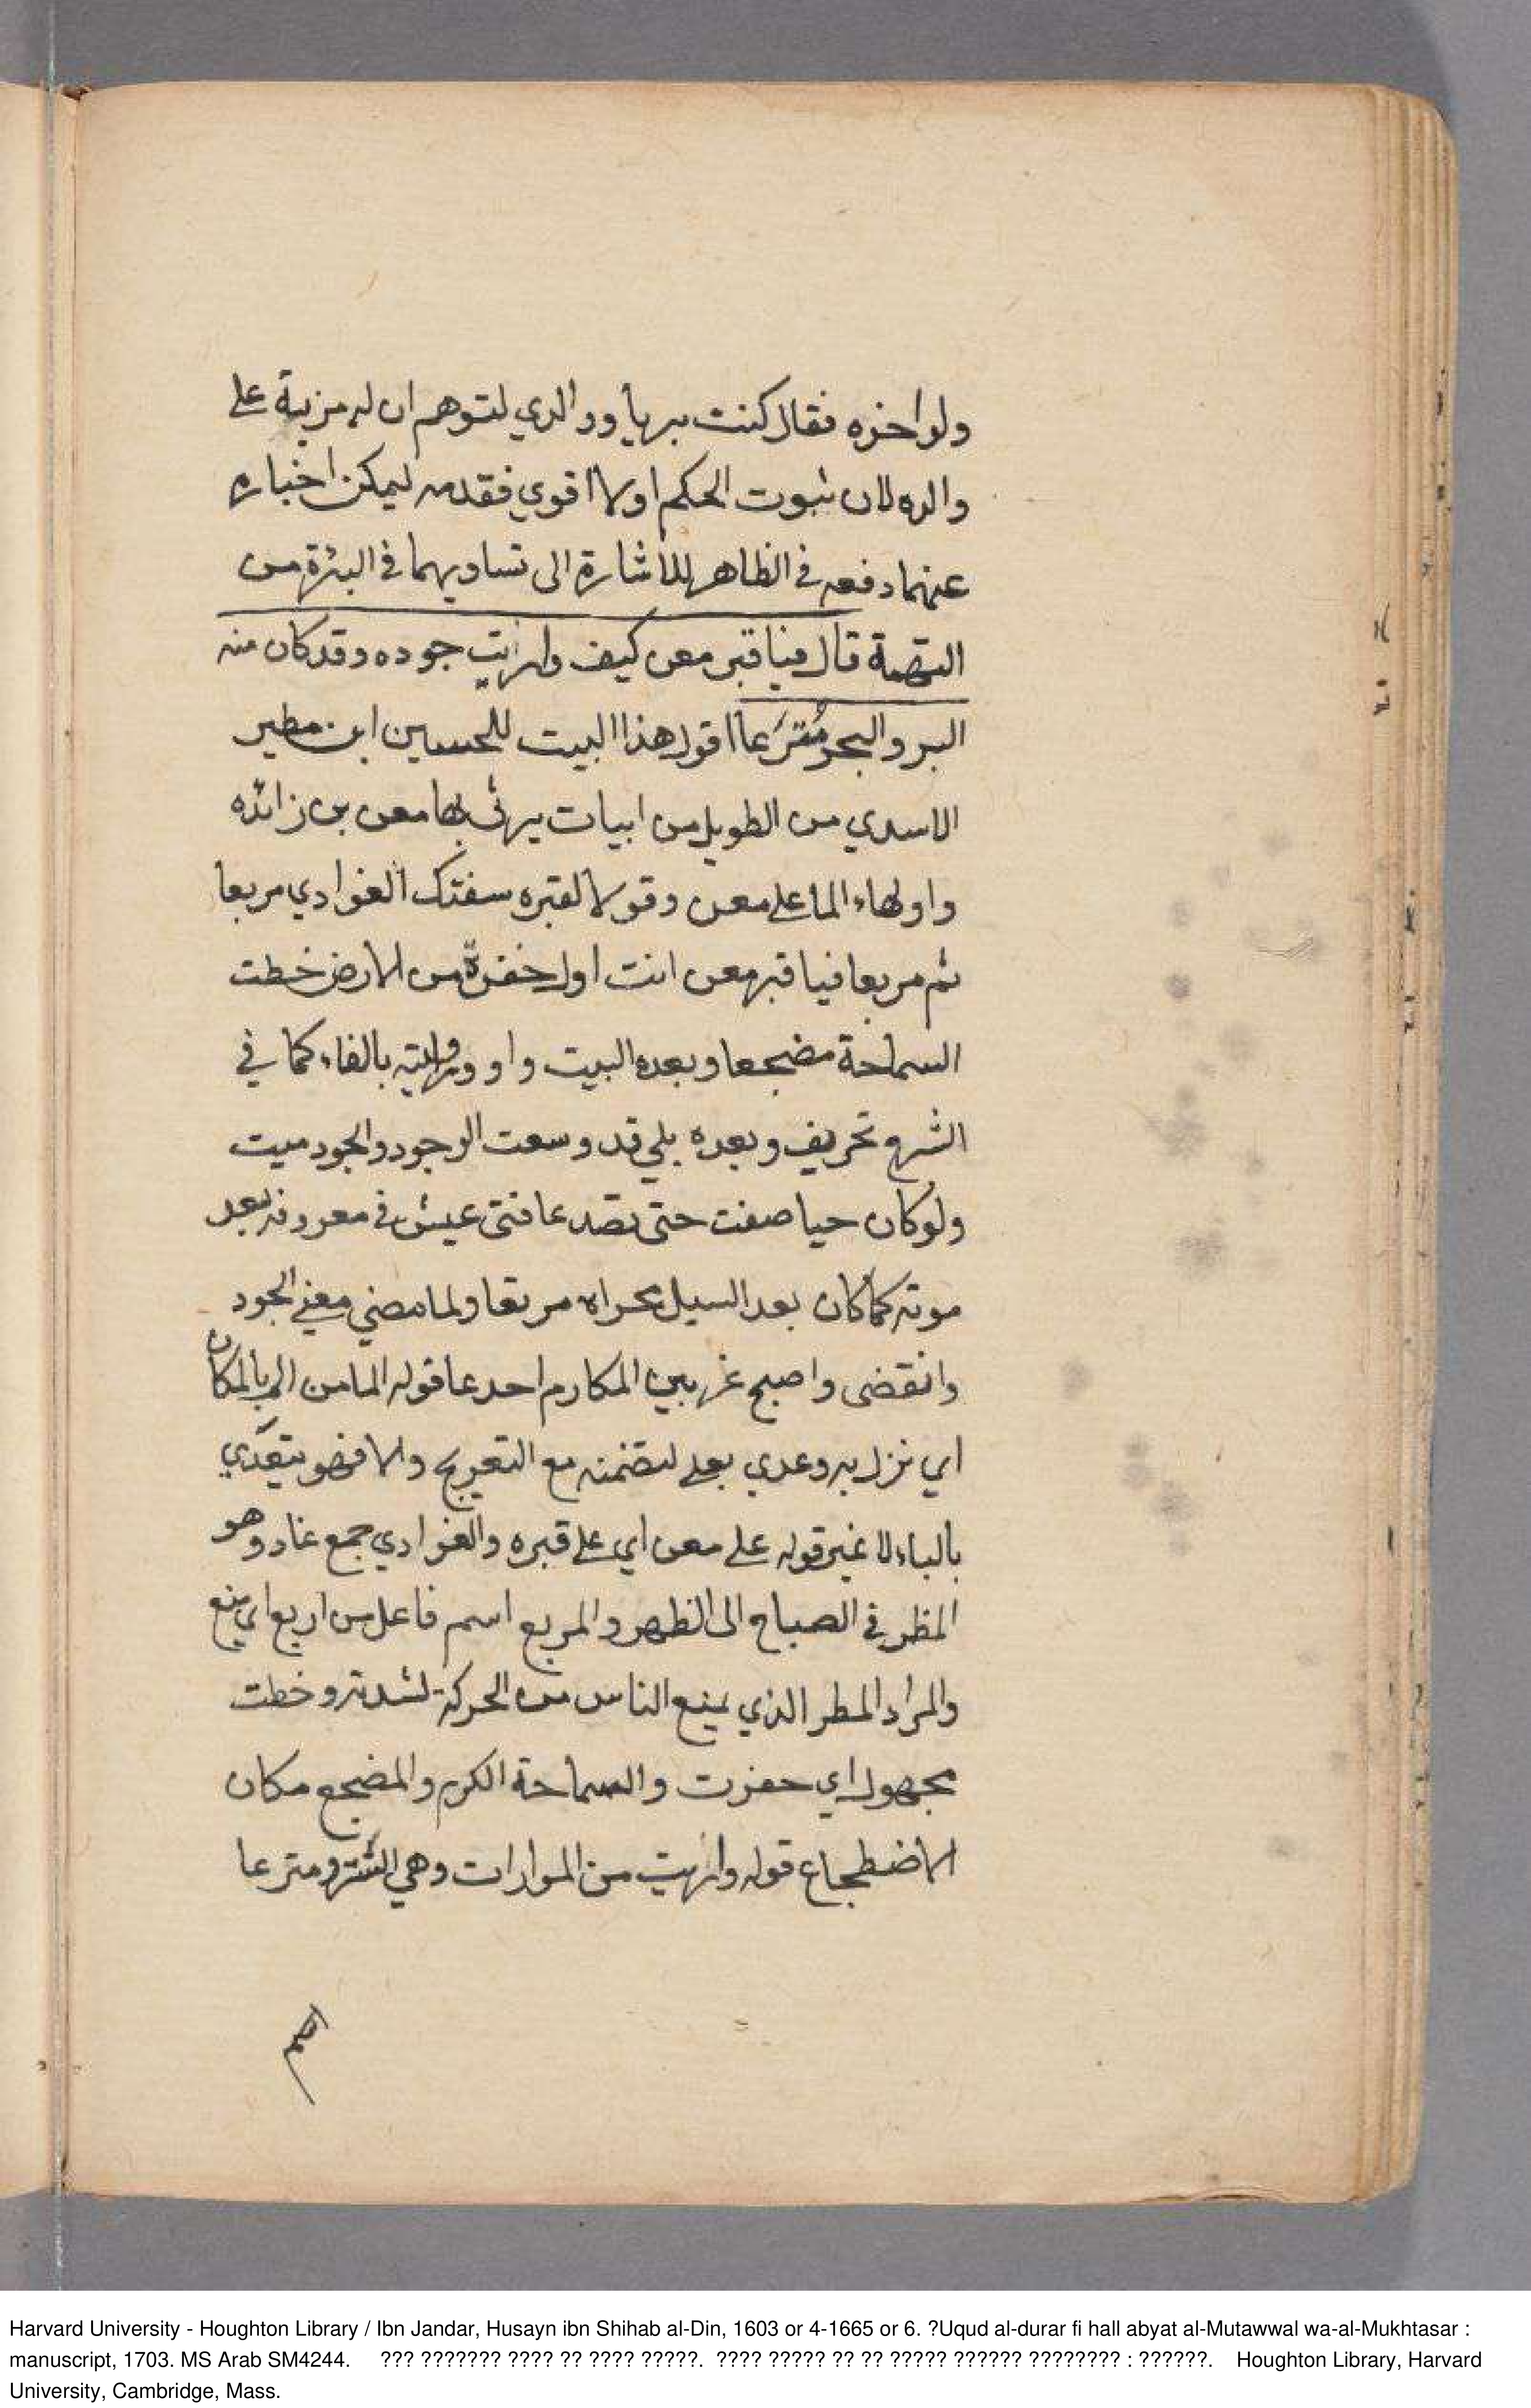 ولو اخره فقال كنت بريا ووالدي لتوهم ان له مزية على
والده لان ثبوت الحكم اولا اقوي فقدمه ليمكن اخباره
عنهما دفعه في الظاهر للاشارة الى تساويهما في البرئة من
التهمة قال فيا قبر معن كيف واريت جوده وقد كان منه
البر والبحر مُترَعا اقول هذا البيت للحسين ابن مطير
الاسدي من الطويل من ابيات يرثي بها معن بن زائده
واولهاء الما على معن وقولا لقبره سقتك الغوادي مربعا
ثم مربعا فيا قبر معن انت اول حفرة من الارض خطت
السماحة مضجعا وبعده البيت واو وروايته بالفاء كما في
الشرح تحريف وبعده بلي قد وسعت الوجود والجود ميت
ولو كان حيا ضفت حتى تصدعا فتى عيش في معروفه بعد
موته كما كان بعد السيل مجراه مرتعا ولما مضي معني الجود
وانقضى واصبح عرنين المكارم اجدعا قوله الما من الم بالمكان
اي نزل به وعدي بعلي لتضمنه مع التعريج والا فهو يتعَدّي
بالباء لا غير قوله على معن اي على قبره والغوادي جمع غاد وهو
المطر في الصباح الى الظهر والمربع اسم فاعل من اربع اي منع
والمراد المطر الذي يمنع الناس من الحركة لشدته وخطت
مجهول اي حفرت والسماحة الكرم والمضجع مكان
الاضطجاع قوله واريت من الموارات وهي الستر ومترعا
Harvard University - Houghton Library / Ibn Jandar, Husayn ibn Shihab al-Din, 1603 or 4-1665 or 6. ?Uqud al-durar fi hall abyat al-Mutawwal wa-al-Mukhtasar :
manuscript, 1703. MS Arab SM4244. ??? ??????? ???? ?? ???? ?????. ???? ????? ?? ?? ????? ?????? ???????? : ??????. Houghton Library, Harvard
University, Cambridge, Mass.